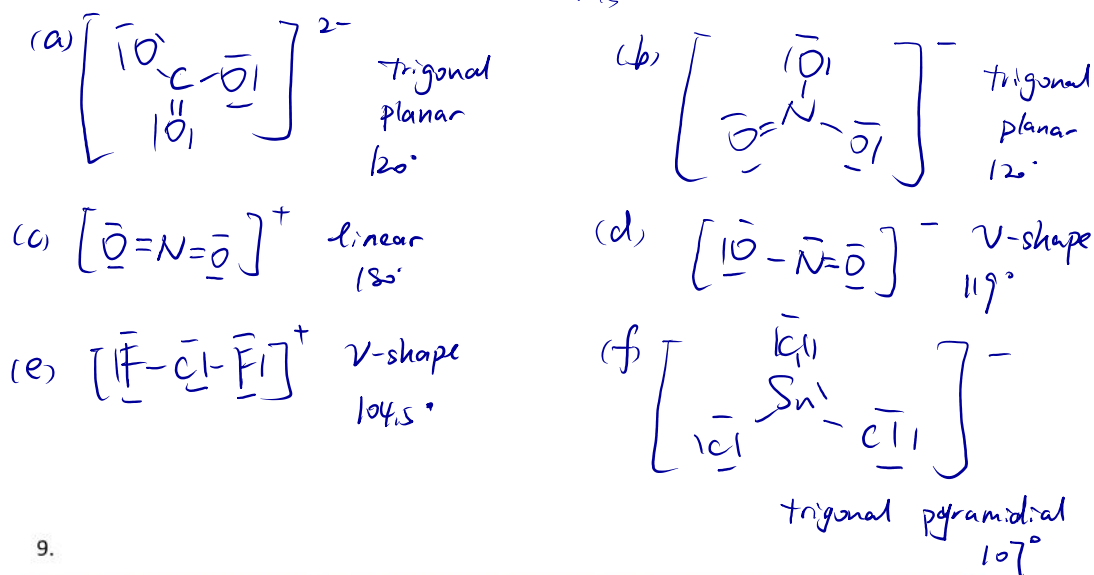 (a) [ |O̅ - C - O̅| || |O| ] 2-
trigonal
planar
120°
(b) [ |O̅| | N O̅= - O̅| ] -
trigonal
planar
120°
(c) [O̅=N=O̅]+ linear
180°
(d) [|O̅-N̅=O̅]- V-shape
119°
(e) [|F̅-C̅l-F̅|]+ V-shape
104.5°
(f) [ |C̅l| Sn |C̅l - C̅l| ] -
trigonal pyramidial
107°
9.